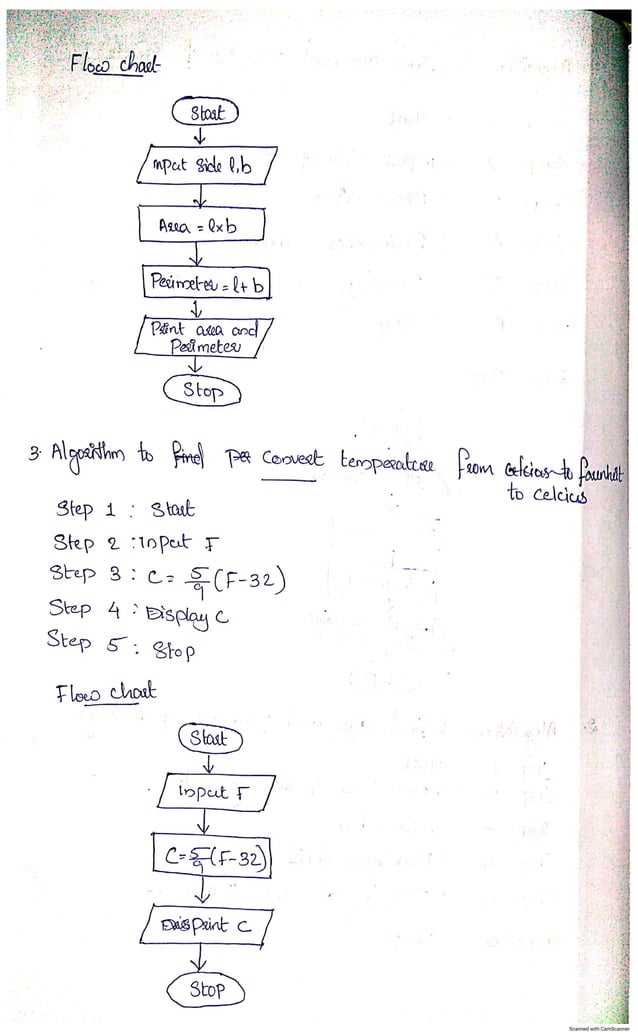 Flow chart
Start
Input side l,b
Area = l×b
Perimeter = l+ b
Print area and
Perimeter
Stop
3. Algorithm to find convert temperature from celcius to farenheit
to celcius
Step 1 : Start
Step 2 : input F
Step 3 : C = 5/9 (F-32)
Step 4 : Display C
Step 5 : Stop
Flow chart
Start
input F
C = 5/9 (F-32)
Print C
Stop
Scanned with CamScanner